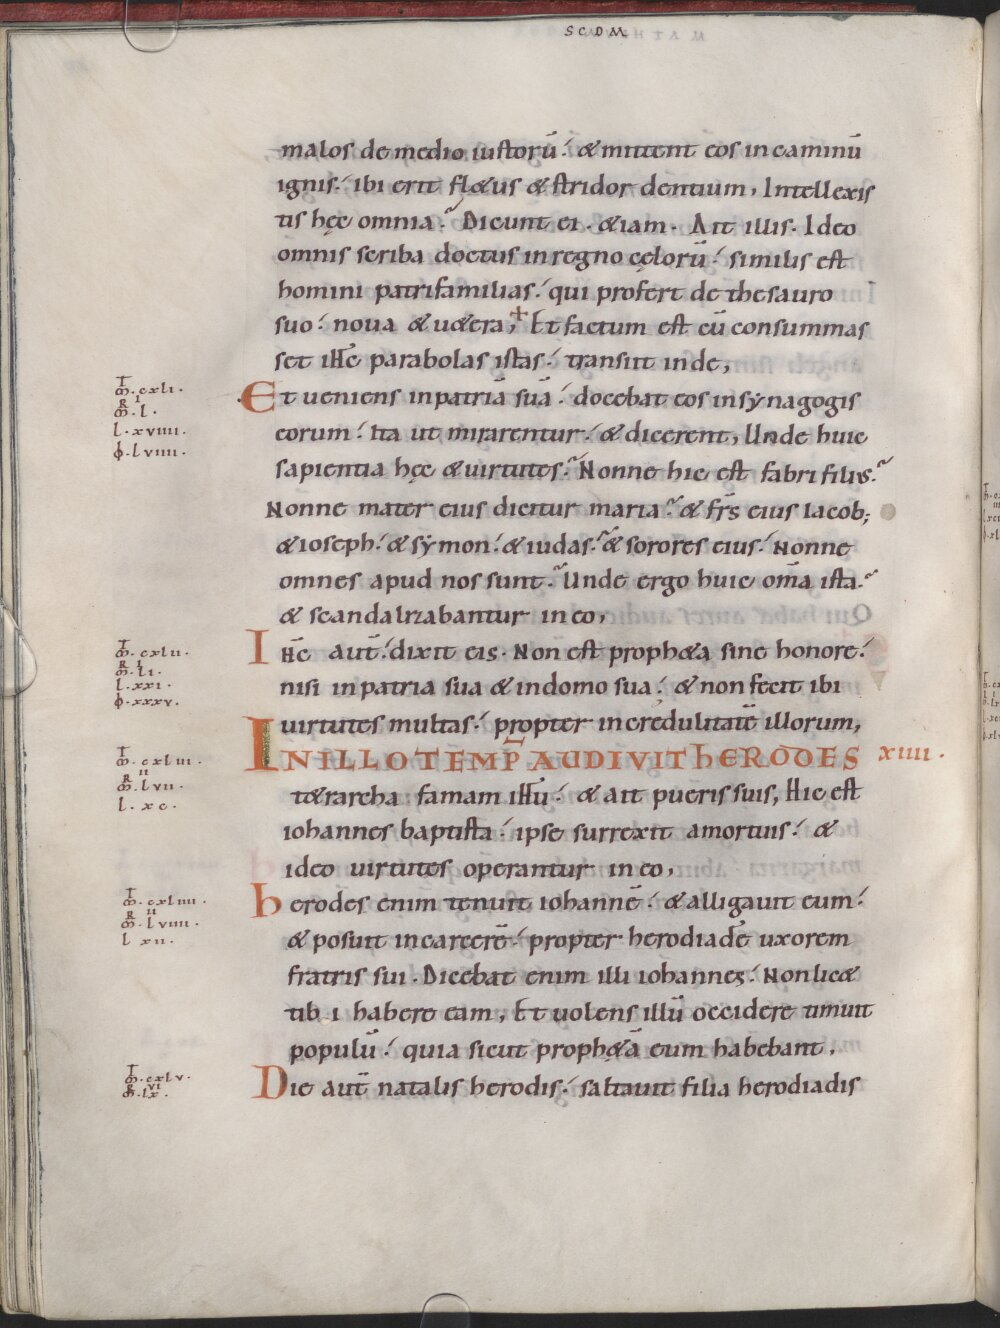 SCDM
malos de medio iustorū. & mittent eos in caminū
ignis. ibi erit fl&us & stridor dentium, Intellexis
tis hęc omnia. Dicunt ei. &iam. Ait illis. Ideo
omnis scriba doctus in regno cęlorū. similis est
homini patrifamilias. qui profert de thesauro
suo. noua & u&era, + Et factum est cū consummas
set ihc parabolas istas. transiit inde,
Et ueniens in patriā suā. docebat eos in synagogis
eorum. Ita ut mirarentur. & dicerent, Unde huic
sapientia hęc & uirtutes. Nonne hic est fabri filius.
Nonne mater eius dicitur maria. & frs eius Iacob;
& ioseph. & symon. & iudas. & sorores eius. Nonne
omnes apud nos sunt. Unde ergo huic oma ista.
& scandalizabantur in eo,
Ihc aut. dixit eis. Non est proph&a sine honore.
nisi in patria sua & in domo sua. & non fecit ibi
uirtutes multas. propter incredulitatē illorum,
IN ILLO TEMP AUDIVIT hERODES xiiii.
t&rarcha famam ihu. & ait pueris suis, Hic est
iohannes baptista. ipse surrexit amortuis. &
ideo uirtutes operantur in eo,
herodes enim tenuit iohannē. & alligauit eum.
& posuit in carcerē. propter herodiadē uxorem
fratris sui. Dicebat enim illi iohannes. Non lic&
tibi habere eam, Et uolens illū occidere timuit
populū. quia sicut proph&ā eum habebant,
Die aut natalis herodis. saltauit filia herodiadis
T
m. cxli.
R I
m. l.
l. xviiii.
φ. lviiii.
T
m. cxlii.
R I
m. li.
l. xxi.
φ. xxxv.
T
m. cxliii.
R II
m. lvii.
l. xc.
T
m. cxliiii.
R II
m. lviiii.
l xii.
T
m. cxlv.
R VI
m. lx.